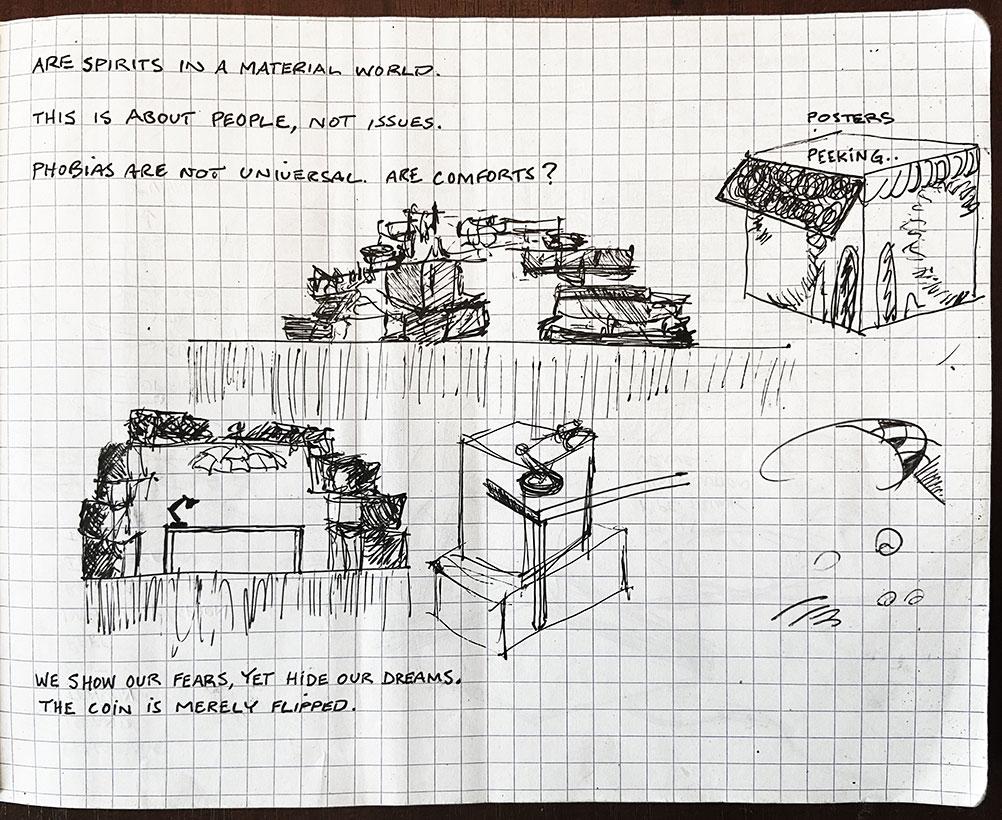 ARE SPIRITS IN A MATERIAL WORLD.
THIS IS ABOUT PEOPLE, NOT ISSUES.
PHOBIAS ARE NOT UNIVERSAL. ARE COMFORTS?
POSTERS
PEEKING..
WE SHOW OUR FEARS, YET HIDE OUR DREAMS.
THE COIN IS MERELY FLIPPED.